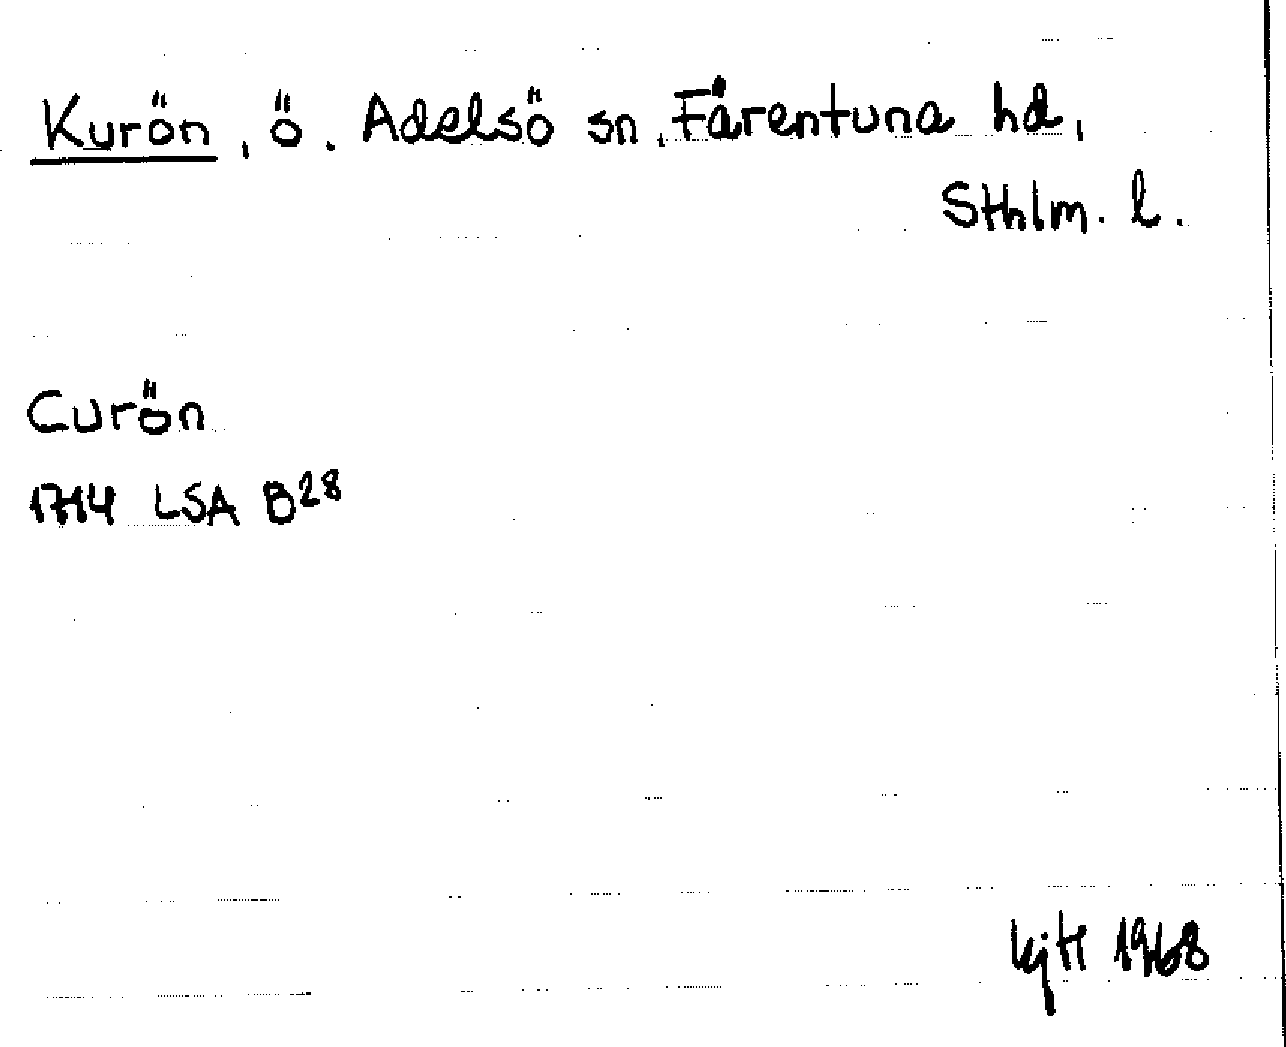 Kurön, ö. Adelsö sn, Färentuna hd,
Sthlm. l.
Curön
1714 LSA B28
KjH 1968